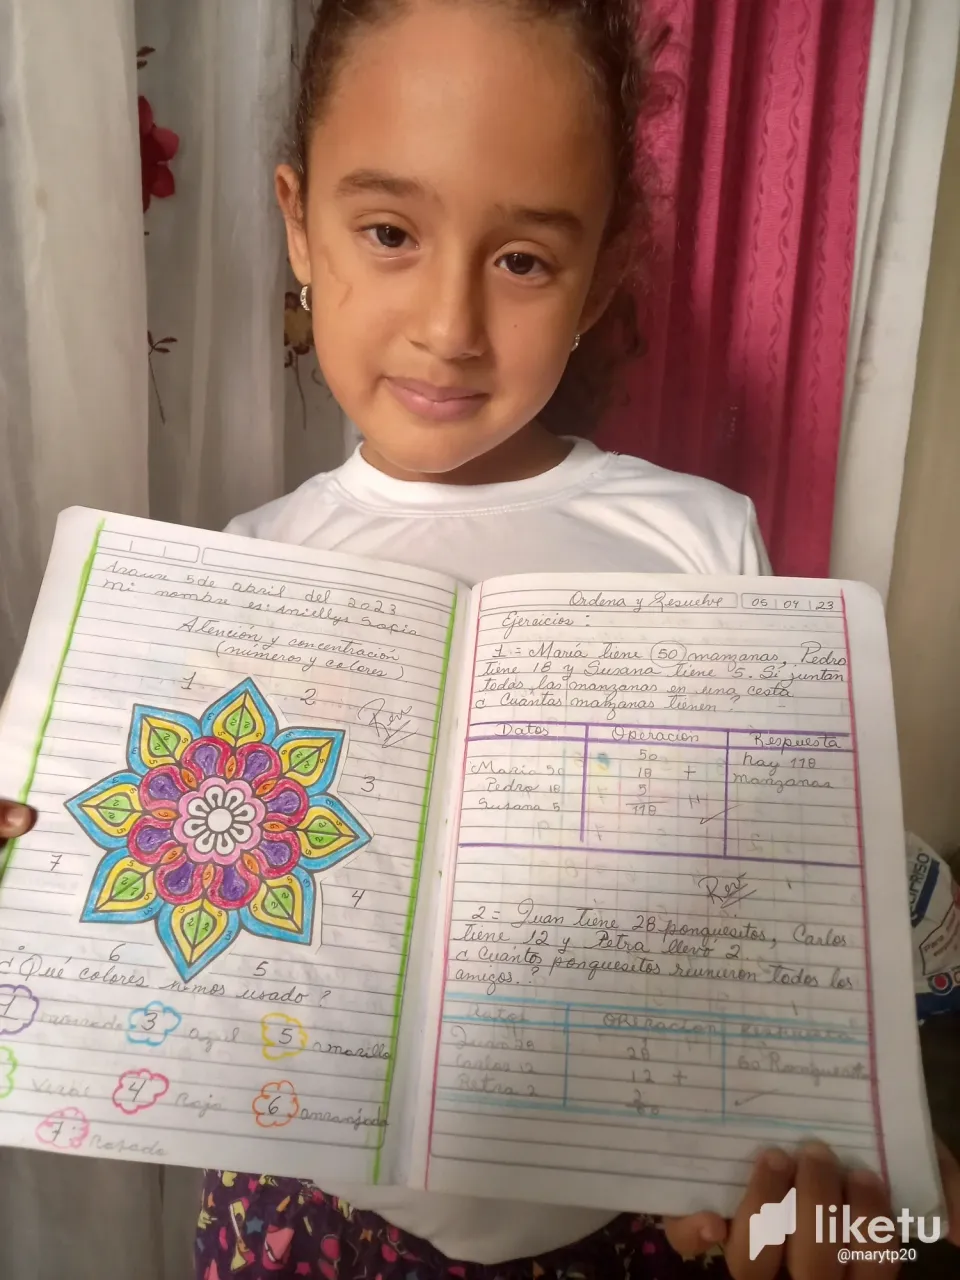 5 de abril del 2023
mi nombre es: Aniellys Sofia
Atención y concentración
(números y colores)
1
2
3
4
5
6
7
¿Qué colores hemos usado?
1 morado 3 azul 5 amarillo
4 Rojo 6 anranjado
7 Rosado
Ordena y Resuelve 05 | 04 | 23
Ejercicios:
1= María tiene 50 manzanas, Pedro
tiene 18 y Susana tiene 5. Si juntan
todas las manzanas en una cesta
¿Cuantas manzanas tienen?
Datos Operación Respuesta
Maria 50 50 hay 118
Pedro 18 18 + manzanas
Susana 5 5
118
Rev
2= Juan tiene 28 ponquesitos, Carlos
tiene 12 y Petra llevó 2.
¿Cuánto ponquesitos reunieron todos los
amigos.?
Datos Operacion Respuesta
Juan 28 28 60 Ponquesito
Carlos 12 12 +
Petra 2 2
60
liketu
@marytp20